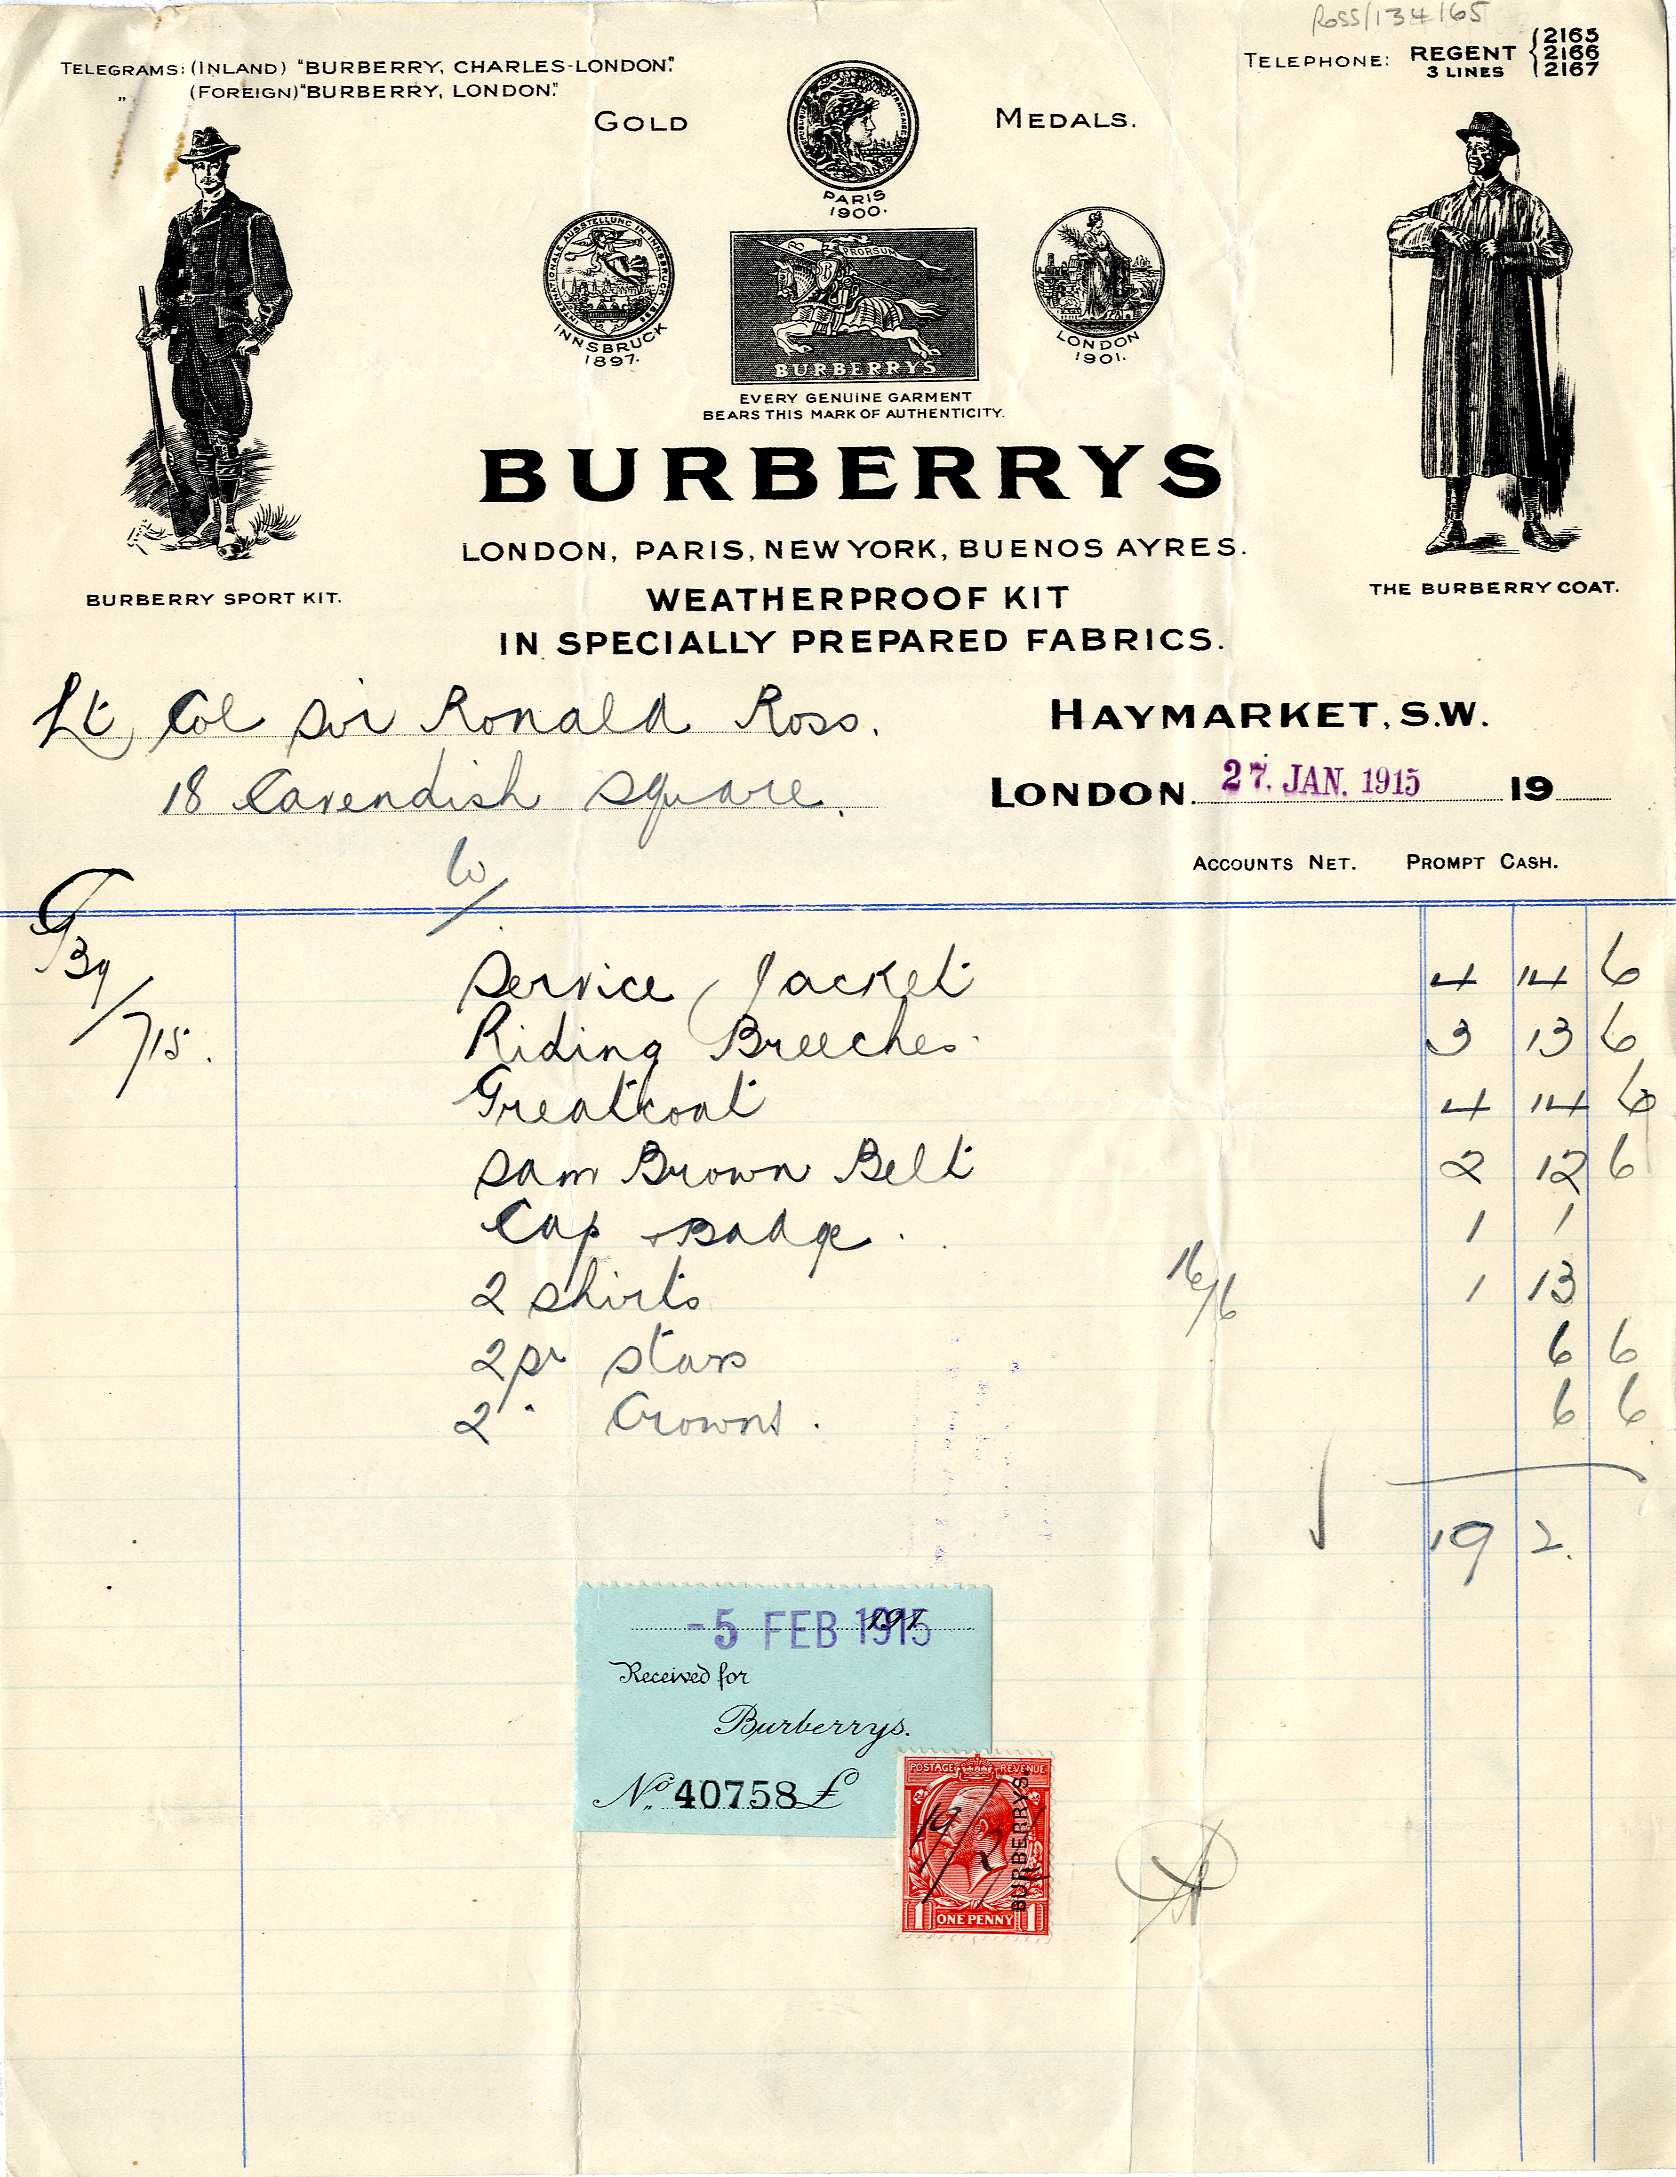 Ross/134/65
TELEGRAMS: (INLAND) "BURBERRY, CHARLES-LONDON."
„ (FOREIGN) "BURBERRY, LONDON."
TELEPHONE: REGENT 3 LINES { 2165 2166 2167
GOLD MEDALS.
PARIS 1900.
INTERNATIONALE AUSSTELLUNG IN INNSBRUCK
INNSBRUCK 1897.
PRORSUM
B
BURBERRYS
LONDON 1901.
EVERY GENUINE GARMENT
BEARS THIS MARK OF AUTHENTICITY.
BURBERRYS
LONDON, PARIS, NEW YORK, BUENOS AYRES.
BURBERRY SPORT KIT.
THE BURBERRY COAT.
WEATHERPROOF KIT
IN SPECIALLY PREPARED FABRICS.
Lt Col Sir Ronald Ross.
HAYMARKET, S.W.
18 Cavendish Square.
LONDON. 27. JAN. 1915 19
ACCOUNTS NET. PROMPT CASH.
Service Jacket 4 14 6
Riding Breeches 3 13 6
Greatcoat 4 14 6
Sam Brown Belt 2 12 6
Cap + Badge. 1 1
2 Shirts 16/6 1 13
2 pr Stars 6 6
2 " Crowns. 6 6
19 2.
-5 FEB 1915
191
Received for
Burberrys.
No. 40758 £
POSTAGE REVENUE
BURBERRYS.
19/2
1 ONE PENNY 1